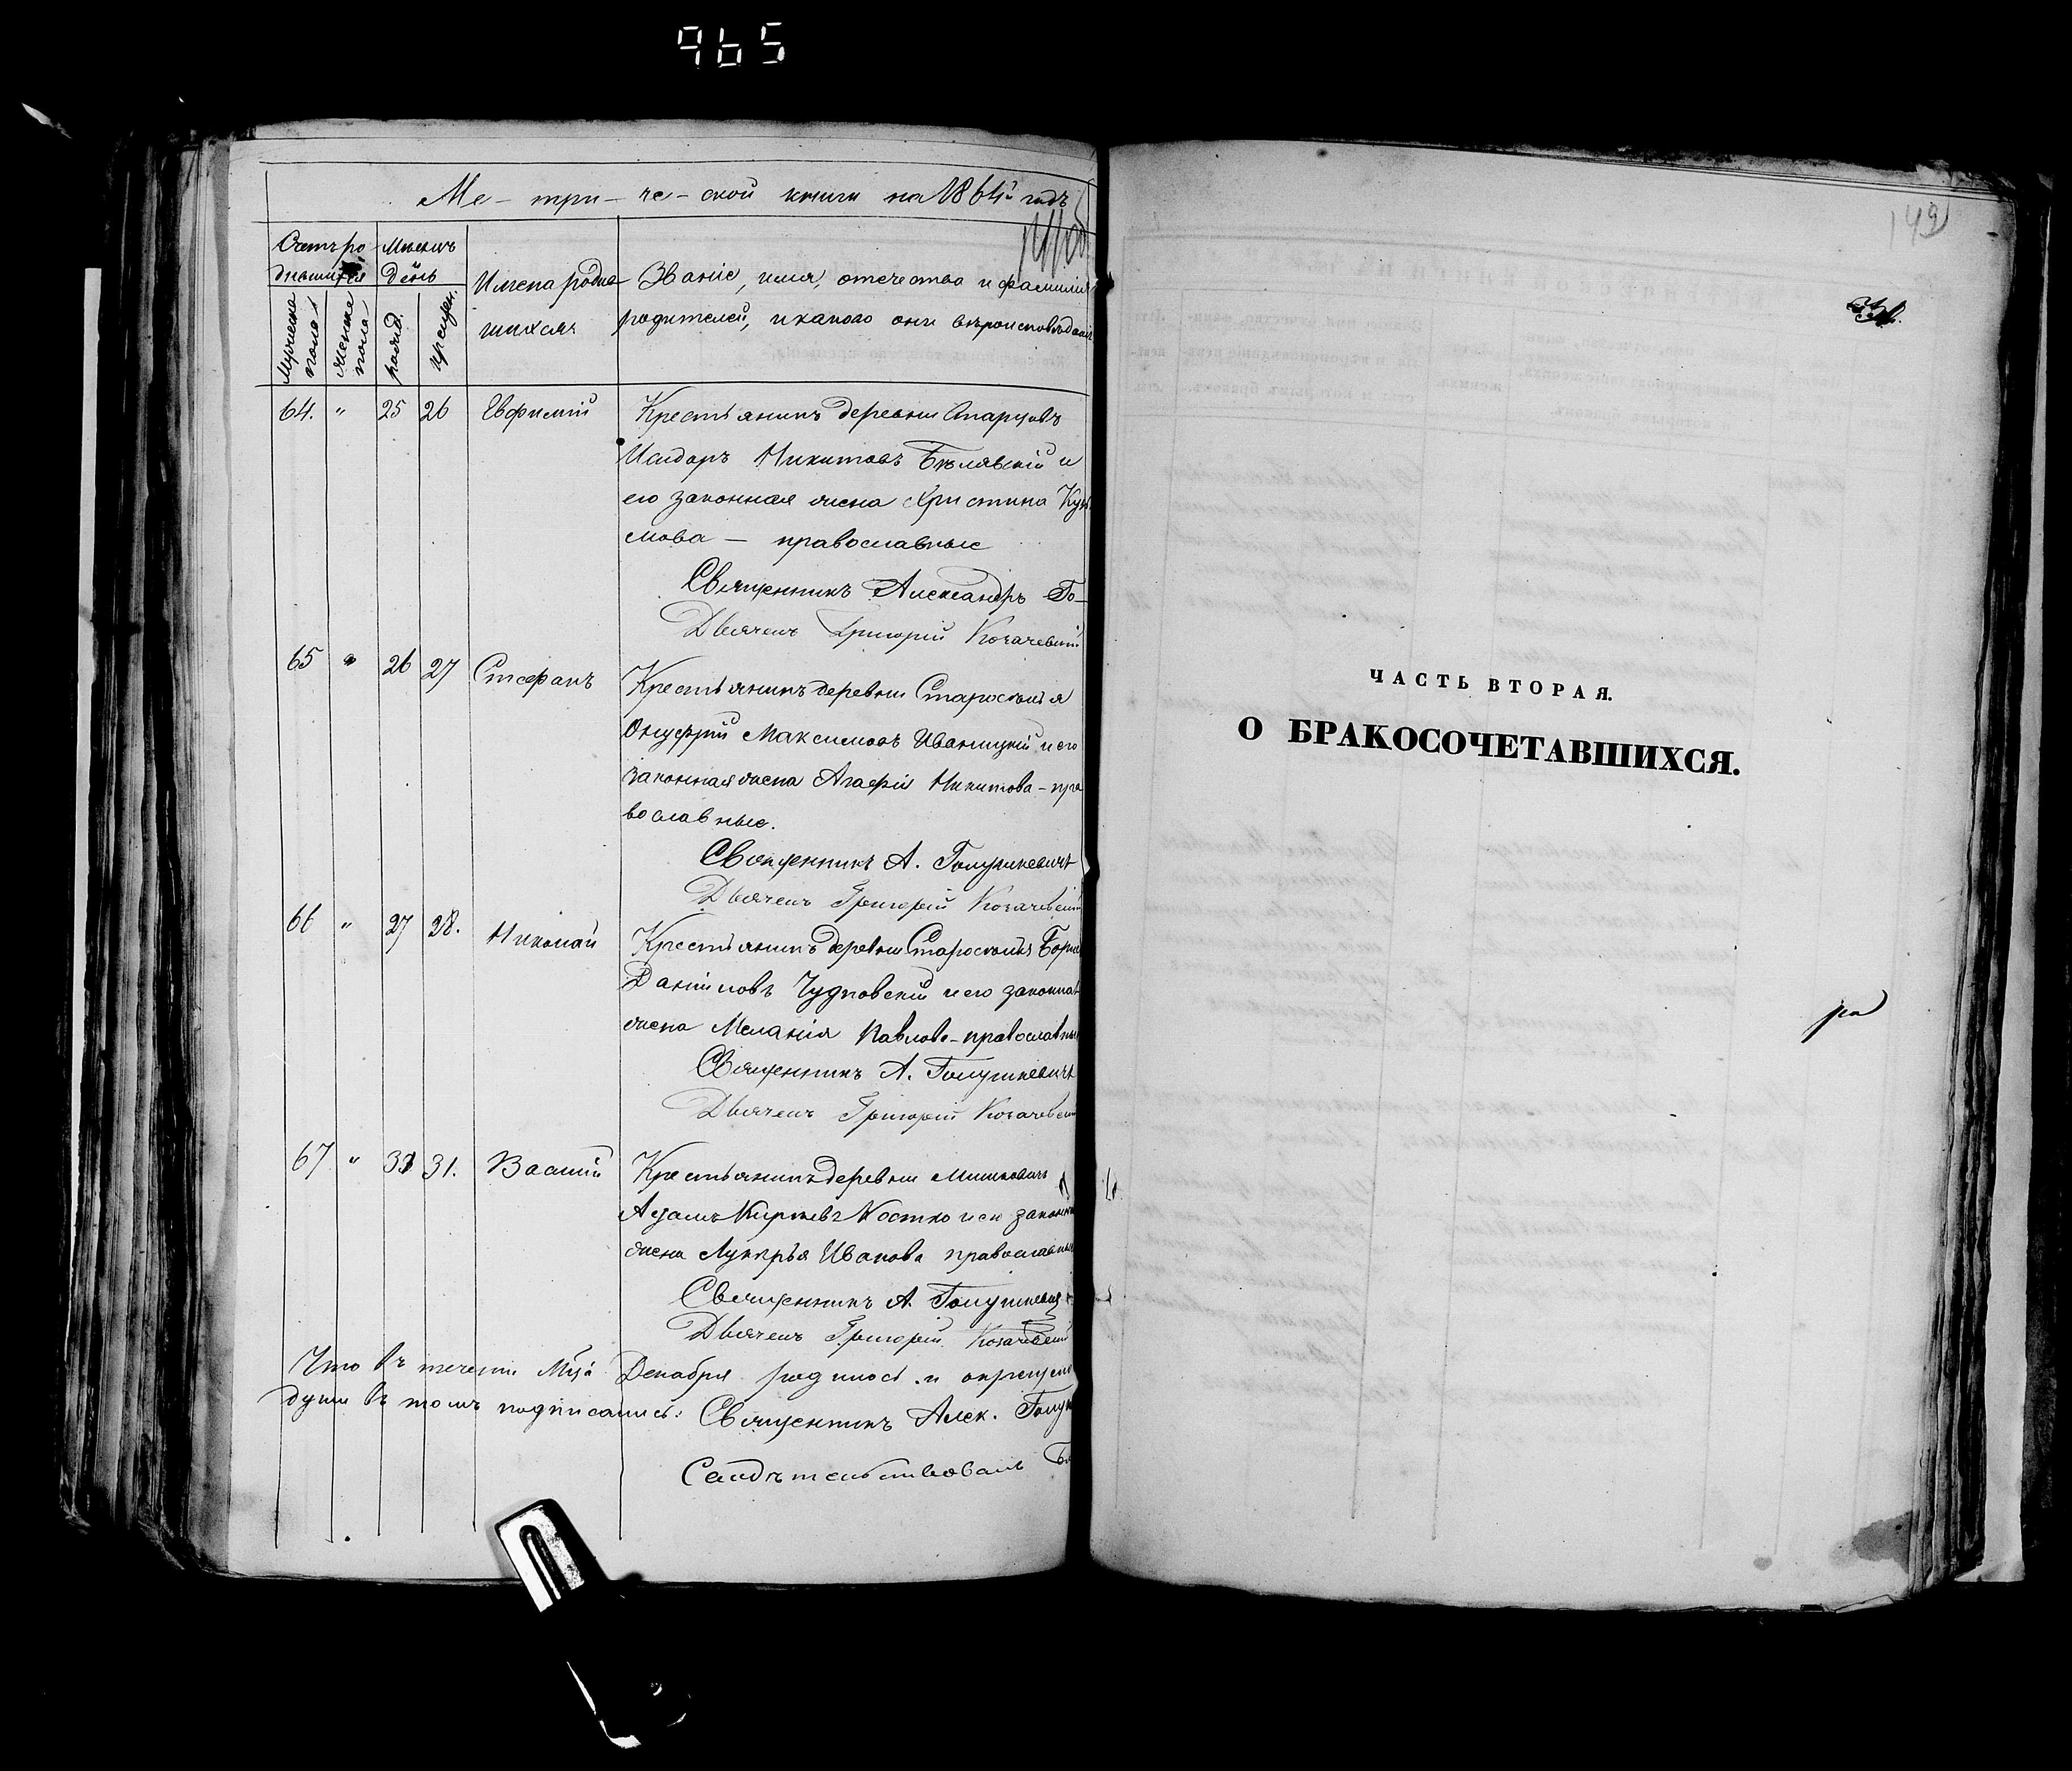 965
Ме- три- че- ской книги на 1864й годъ
Счетъ ро Мѣсяцъ
дившихся и день
Мужеска пола
женска пола
рожд.
крещен.
Имена родив
шихся
Званіе, имя, отечество и фамилія
родителей, и какого они вѣроисповѣданія
64. " 25 26 Евфимій Крестьянинъ деревни
Исидоръ Никитовъ Бѣлявскій и
его законная жена Христина Кузь
мова — православные
Священникъ Александръ Го-
Дьячекъ Григорій Козачевскій
65 " 26 27 Стефанъ
Крестьянинъ деревни Староселья
Онуфрій Максимовъ Иваницкій и его
законная жена Агафія Никитова - пра
вославные.
Священникъ А. Голушкевичъ
Дьячекъ Григорій Козачевскій
66 " 27 28. Николай Крестьянинъ деревни Староселья
Даніиловъ Чудновскій и его законная
жена Меланія Павлова - православные
Священникъ А. Голушкевичъ
Дьячекъ Григорій Козачевскій
67 " 31. Василій Крестьянинъ деревни
Адамъ Костко и его законная
жена Лукерья Иванова православные
Священникъ А. Голушкевичъ
Дьячекъ Григорій Козачевскій
Что въ теченіи Мѣца Декабря
души въ томъ подписались: Священникъ Алек.
149
ЧАСТЬ ВТОРАЯ.
О БРАКОСОЧЕТАВШИХСЯ.
ра